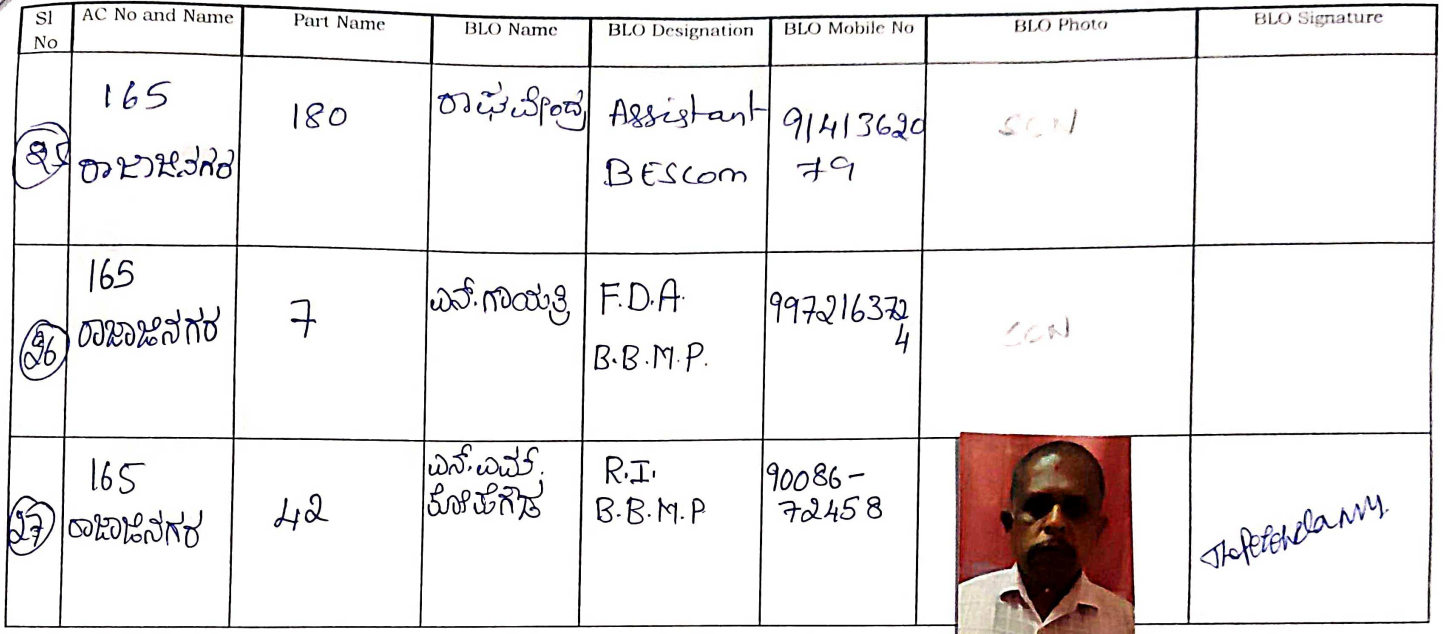 Sl No
AC No and Name
Part Name
BLO Name
BLO Designation
BLO Mobile No
BLO Photo
BLO Signature
25
165
ರಾಜಾಜಿನಗರ
180
ರಾಘವೇಂದ್ರ
Assistant
BESCom
91413620
79
SCN
26
165
ರಾಜಾಜಿನಗರ
7
ಎನ್.ಗಾಯತ್ರಿ
F.D.A.
B.B.M.P.
997216372
4
SCN
27
165
ರಾಜಾಜಿನಗರ
42
ಎನ್.ಎಮ್.
R.I.
B.B.M.P
90086-
72458